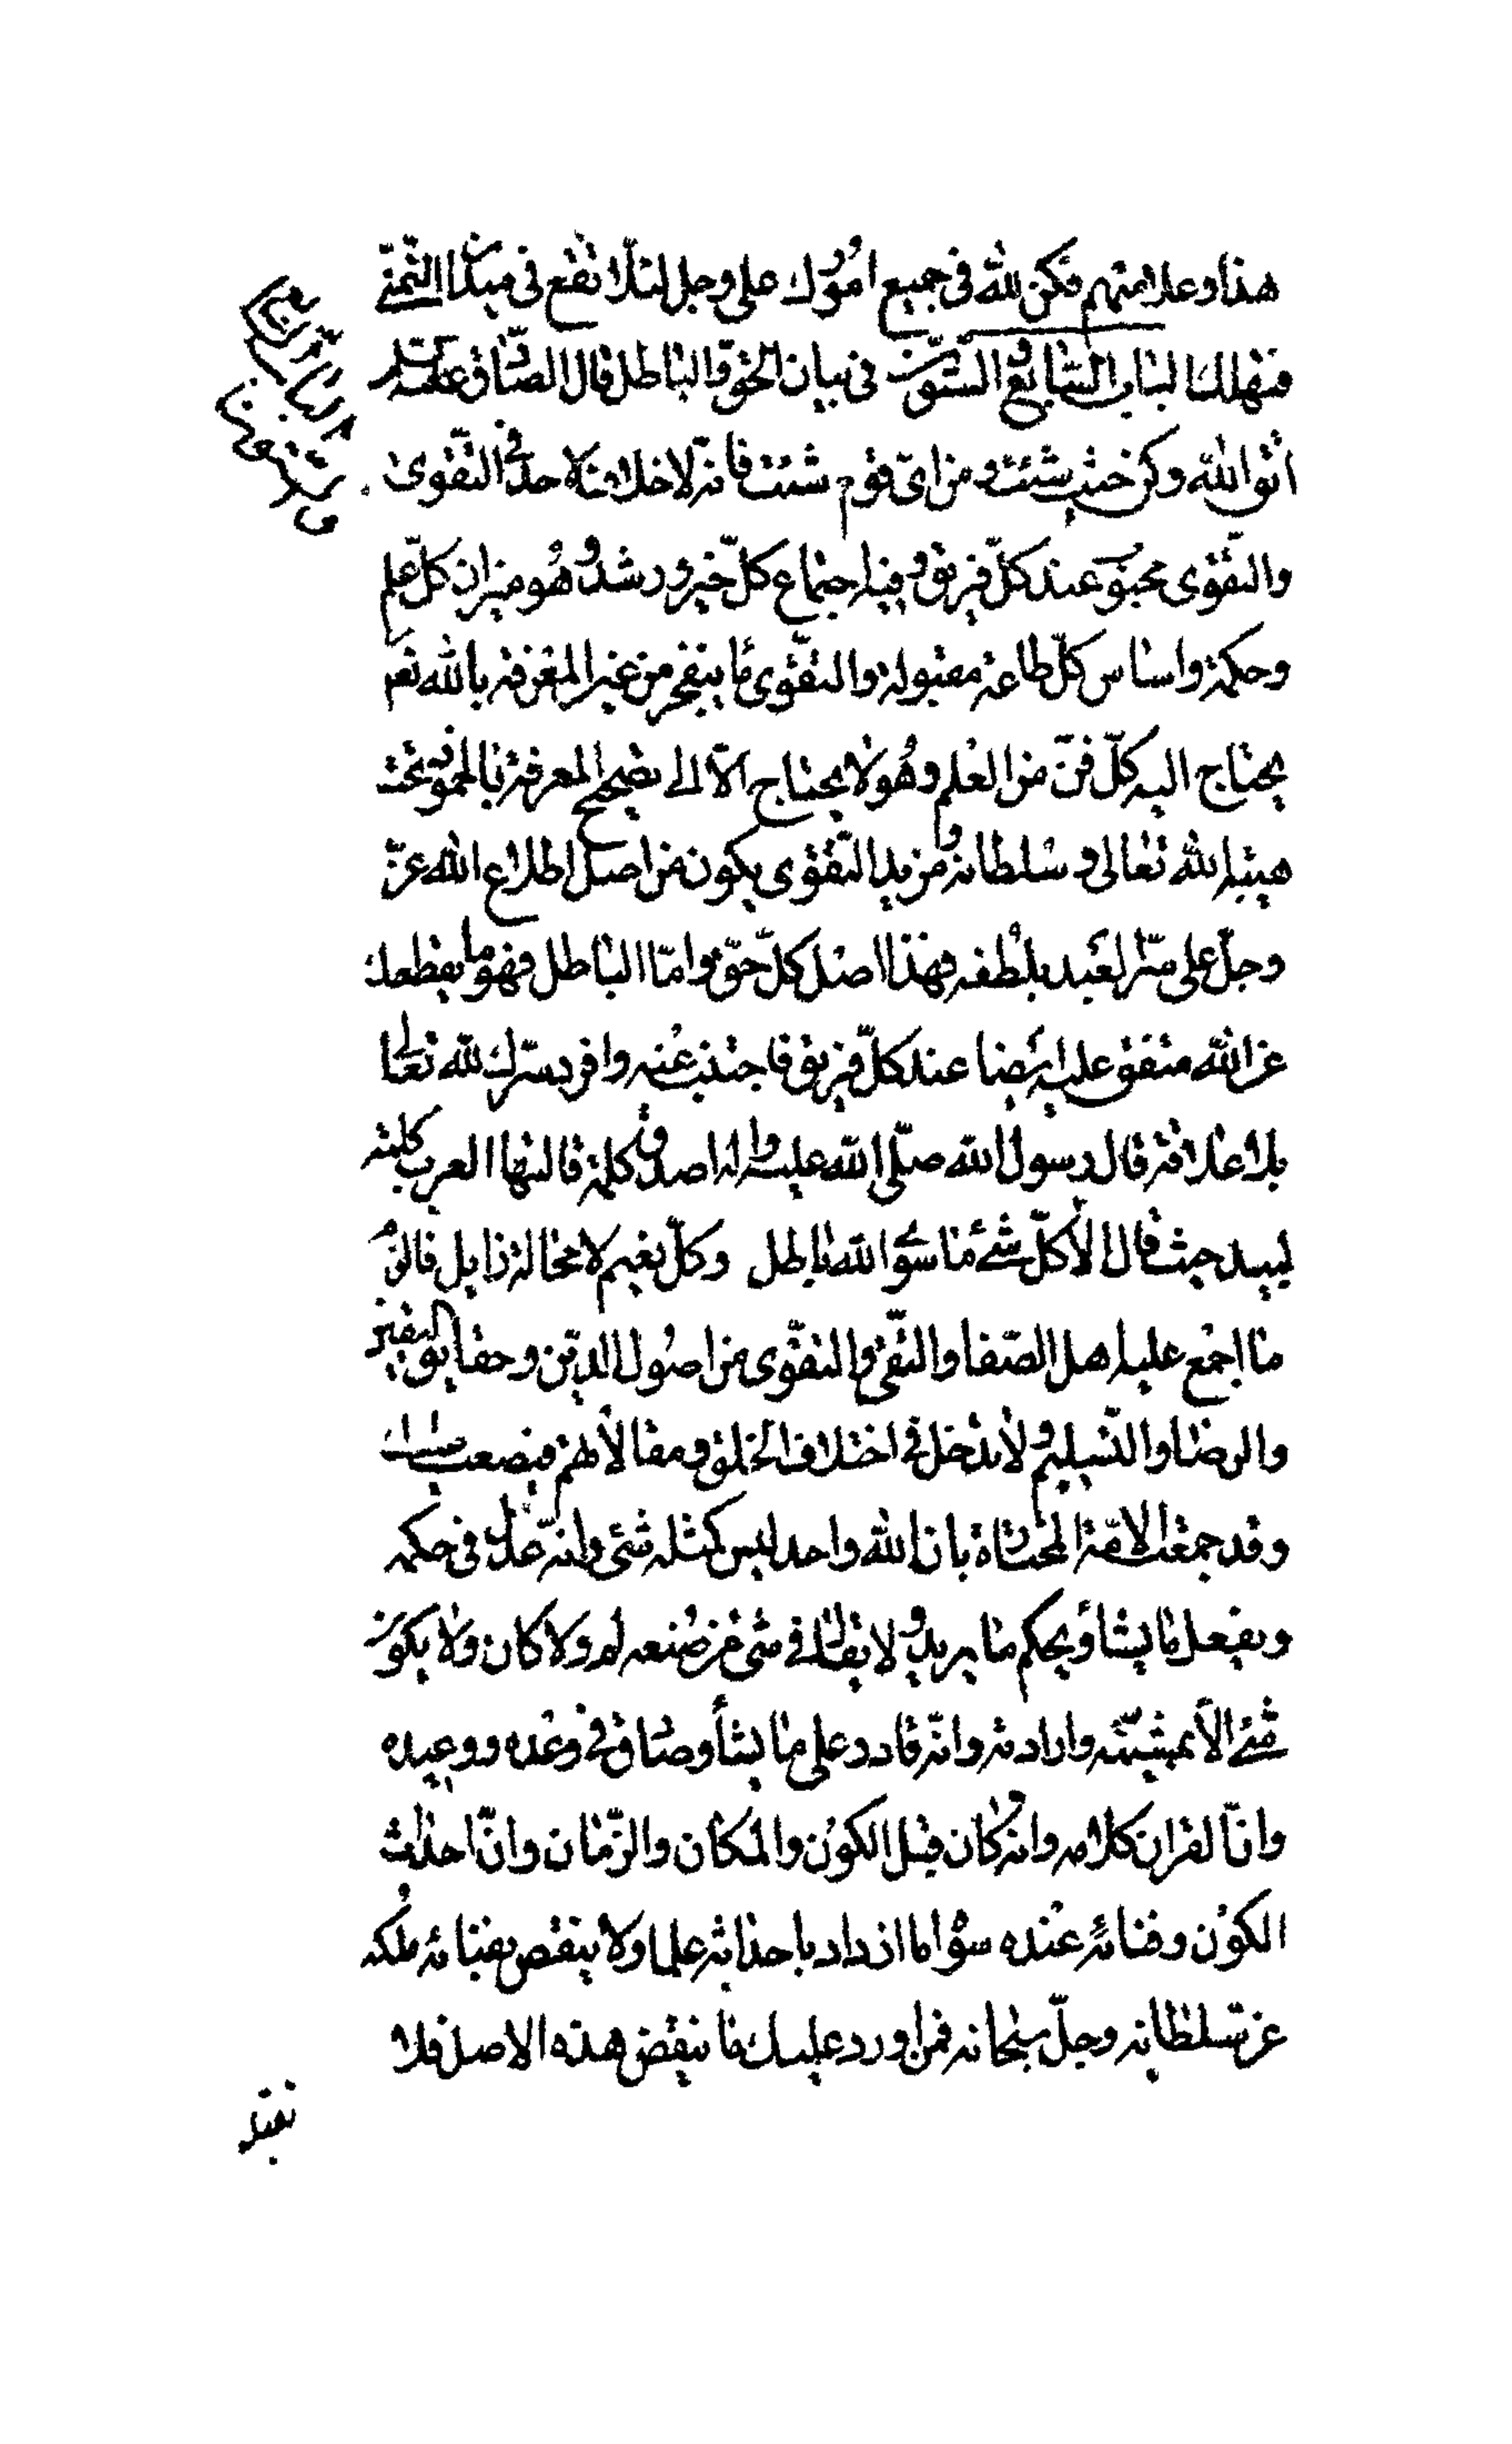 هذا وعلامتهم فكن لله فى جميع امورك على وجل لئلا تقع فى ميدان التمنّى
فتهلك الباب السابع والستون فى بيان الحق والباطل قال الصادق عليه السلام
اتق الله وكن حيث شئت ومن اىّ قوم شئت فانّه لا خلاف لاحد فى التقوى
والتقوى محبوب عند كلّ فريق وفيه اجتماع كلّ خير ورشد وهو ميزان كلّ علم
وحكمة واساس كلّ طاعة مقبولة والتقوى ما ينفجر من عين المعرفة بالله تعم
يحتاج اليه كلّ فنّ من العلم وهو لا يحتاج الّا الى تصحيح المعرفة بالخمود تحت
هيبة الله تعالى وسلطانه ومزيد التقوى يكون من اصل اطلاع الله عزّ
وجلّ على سرّ العبد بلطفه فهذا اصل كلّ حقّ وامّا الباطل فهو ما يقطعك
عن الله متفق عليه ايضا عند كلّ فريق فاجتنب عنه وافرد سرّك لله تعالى
بلا علاقة قال رسول الله صلّى الله عليه واله اصدق كلمة قالتها العرب كلمة
لبيد حيث قال الا كلّ شئ ما سوى الله باطل وكلّ نعيم لا محالة زايل فالزم
ما اجمع عليه اهل الصّفا والتّقى والتقوى من اصول الدين وحقايق اليقين
والرضا والتسليم ولا تدخل فى اختلاف الخلق ومقالاتهم فيصعب عليك
وقد جمعت الامّة المختارة بان الله واحد ليس كمثله شئ وانّه عدل فى حكمه
ويفعل ما يشأ ويحكم ما يريد ولا يقال فى شئ من صنعه لم ولا كان ولا يكون
شئ الّا بمشيّته وارادته وانّه قادر على ما يشأ وصادق فى وعده ووعيده
وانّ القران كلامه وانه كان قبل الكون والمكان والزّمان وانّ احداث
الكون وفنائه عنده سوا ما ازداد باحداثه علما ولا ينقص بفنائه ملكه
عزّ سلطانه وجلّ سبحانه فمن اورد عليك ما ينقض هذه الاصل فلا
تقبله